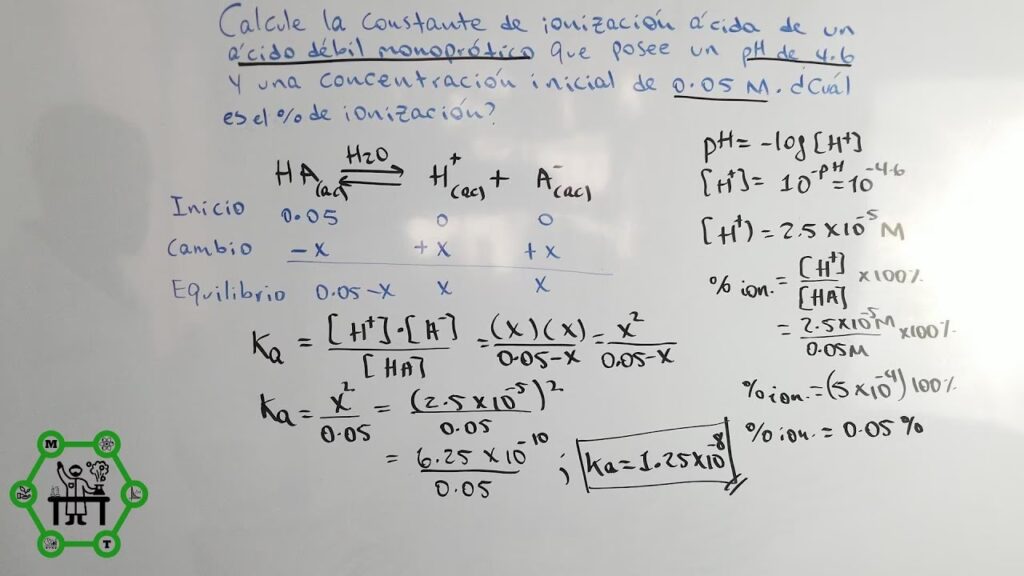 Calcule la constante de ionización ácida de un
ácido débil monoprótico que posee un pH de 4.6
y una concentración inicial de 0.05 M. ¿Cuál
es el % de ionización?
HA(ac) ⇌ H⁺(ac) + A⁻(ac)
H2O
Inicio 0.05 0 0
Cambio -x +x +x
Equilibrio 0.05-x x x
Ka = [H⁺]·[A⁻]/[HA] = (x)(x)/0.05-x = x²/0.05-x
Ka = x²/0.05 = (2.5 x10⁻⁵)²/0.05
= 6.25 x10⁻¹⁰/0.05 ; Ka = 1.25x10⁻⁸
pH = -log [H⁺]
[H⁺] = 10^-pH = 10^-4.6
[H⁺) = 2.5 x10⁻⁵ M
% ion. = [H⁺]/[HA] x100%
= 2.5x10⁻⁵M/0.05M x100%
% ion. = (5 x10⁻⁴) 100%
% ion. = 0.05 %
M
T